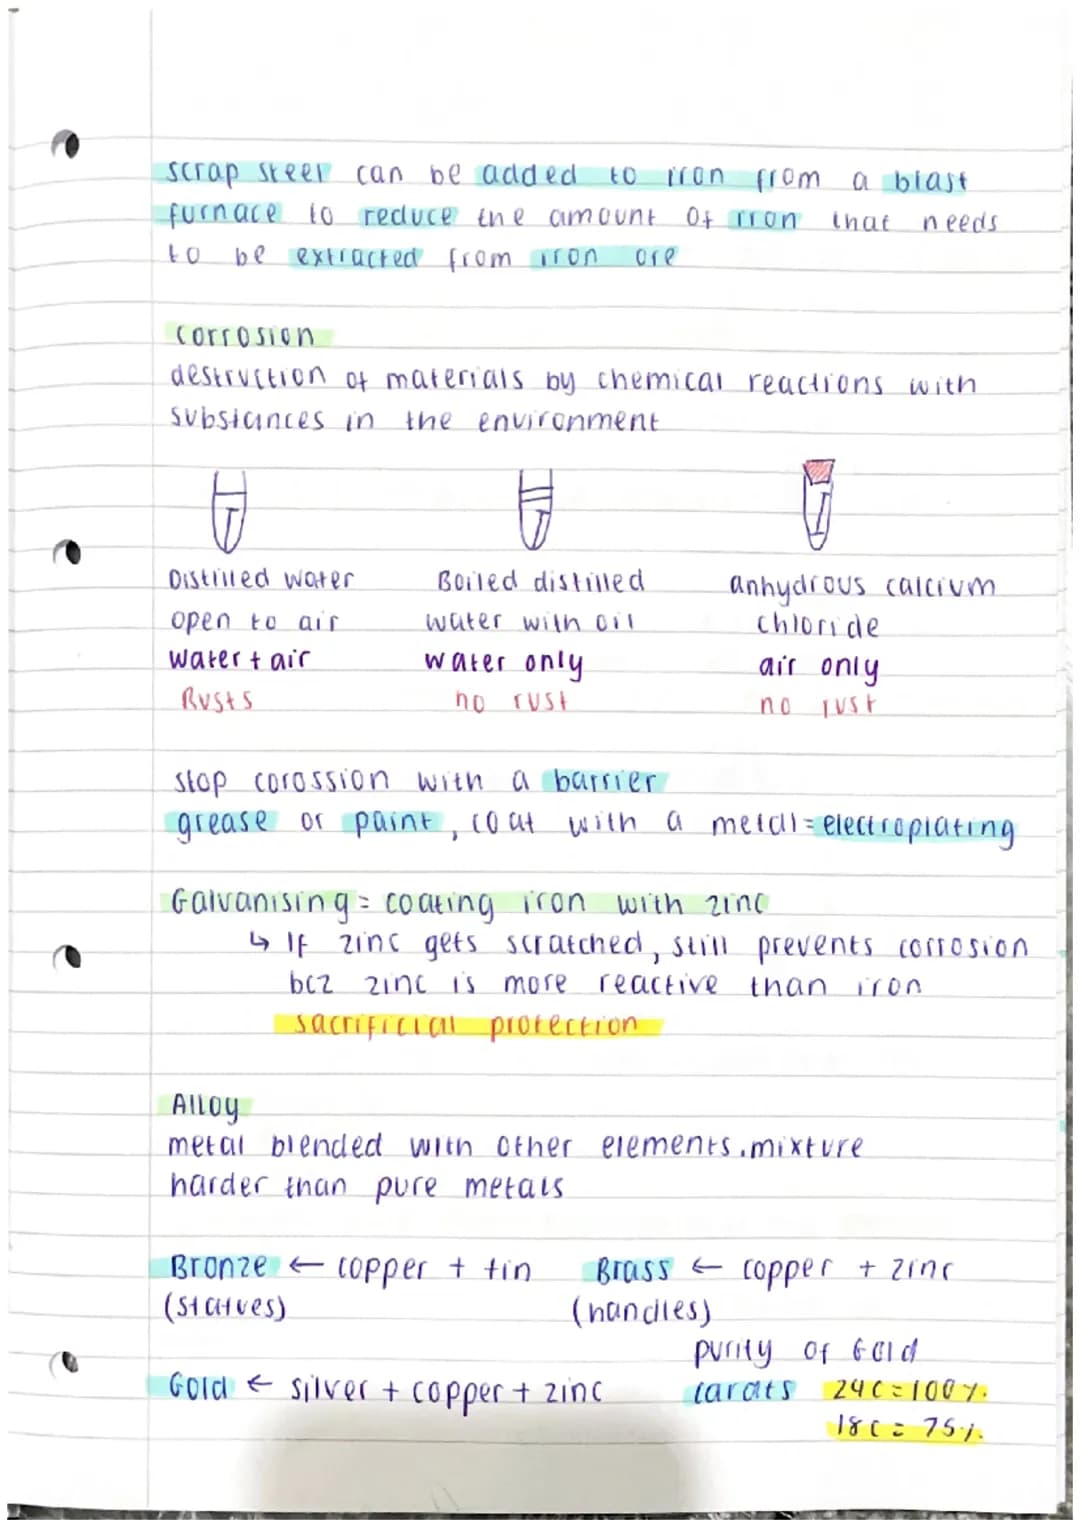 scrap steel can be added to iron from a blast
furnace to reduce the amount of iron that needs
to be extracted from iron ore
Corrosion
destruction of materials by chemical reactions with
substances in the environment
Distilled water
open to air
water + air
Rusts
Boiled distilled
water with oil
water only
no rust
anhydrous calcium
chloride
air only
no rust
stop corossion with a barrier
grease or paint, coat with a metal = electroplating
Galvanising = coating iron with zinc
↳ If zinc gets scratched, still prevents corrosion
bcz zinc is more reactive than iron
sacrificial protection
Alloy
metal blended with other elements. mixture
harder than pure metals
Bronze ← copper + tin
(statues)
Brass ← copper + zinc
(handles)
Gold ← silver + copper + zinc
purity of Gold
carats 24c = 100%.
18c = 75%.